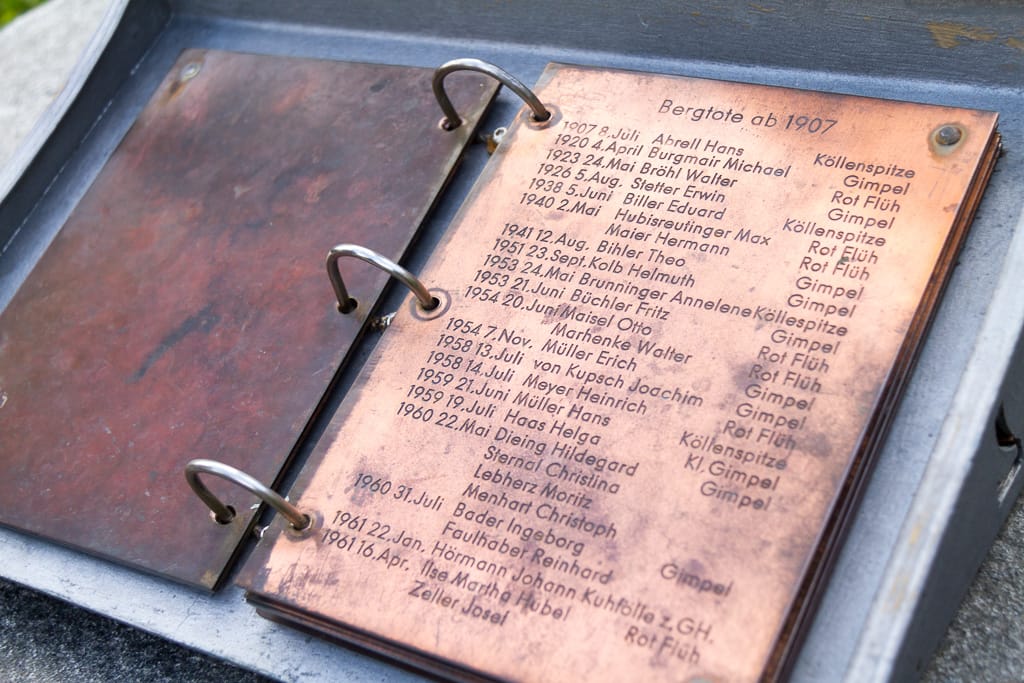 Bergtote ab 1907
1907 8.Juli Abrell Hans Köllenspitze
1920 4.April Burgmair Michael Gimpel
1923 24.Mai Bröhl Walter Rot Flüh
1926 5.Aug. Stetter Erwin Gimpel
1938 5.Juni Biller Eduard Köllenspitze
1940 2.Mai Hubisreutinger Max Rot Flüh
Maier Hermann Rot Flüh
1941 12.Aug. Bihler Theo Gimpel
1951 23.Sept.Kolb Helmuth Gimpel
1953 24.Mai Brunninger Annelene Köllespitze
1953 21.Juni Büchler Fritz Gimpel
1954 20.Juni Maisel Otto Rot Flüh
Marhenke Walter Rot Flüh
1954 7.Nov. Müller Erich Gimpel
1958 13.Juli von Kupsch Joachim Gimpel
1958 14.Juli Meyer Heinrich Rot Flüh
1959 21.Juni Müller Hans Köllenspitze
1959 19.Juli Haas Helga Kl.Gimpel
1960 22.Mai Dieing Hildegard Gimpel
Sternal Christina
Lebherz Moritz
Menhart Christoph
1960 31.Juli Bader Ingeborg Gimpel
Faulhaber Reinhard
1961 22.Jan. Hörmann Johann Kuhfölle z.GH.
1961 16.Apr. Ilse Martha Hübel Rot Flüh
Zeller Josef